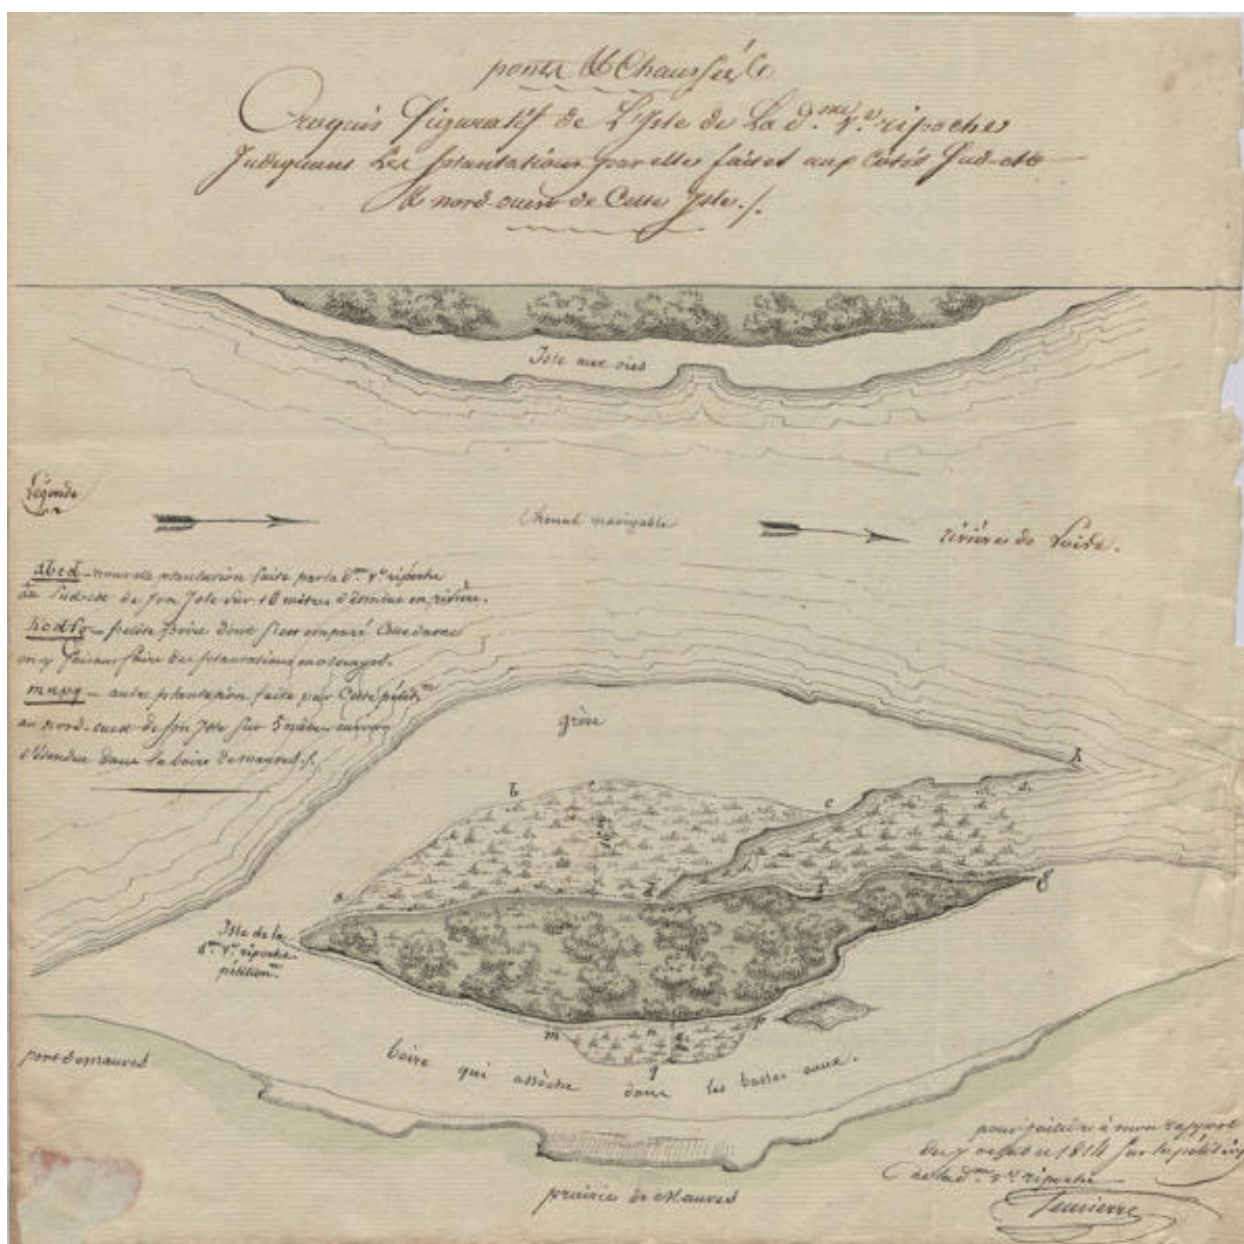 ponts & Chaussées
Croquis figuratif de L'Isle de La d.me V.e ripoche
Indiquant Les plantations par elles faites aux Côtés Sud-est
& nord-ouest de Cette Isle ./.
Isle aux oies
Légende
Chenal navigable
rivière de Loire.
abcd - nouvelle plantation faite par la d.me V.e ripoche
au Sud-est de son Isle sur 10 mètres d'étendue en rivière.
hcdfg - petite Boire dont s'est emparé Cette dame
en y faisant faire des plantations
mnpq - autre plantation faite par Cette pétit.re
au nord-ouest de son Isle sur 5 mètres environ
d'étendue dans la boire de mauves ./.
grève
h
b
c
a
d
f
g
Isle de la
d.me V.e ripoche
pétition.re
m
n
p
q
port de mauves
boire qui assèche dans les basses eaux.
prairie de Mauves
pour joindre à mon rapport
du 7 octobre 1814 sur la pétition
de la d.me V.e ripoche